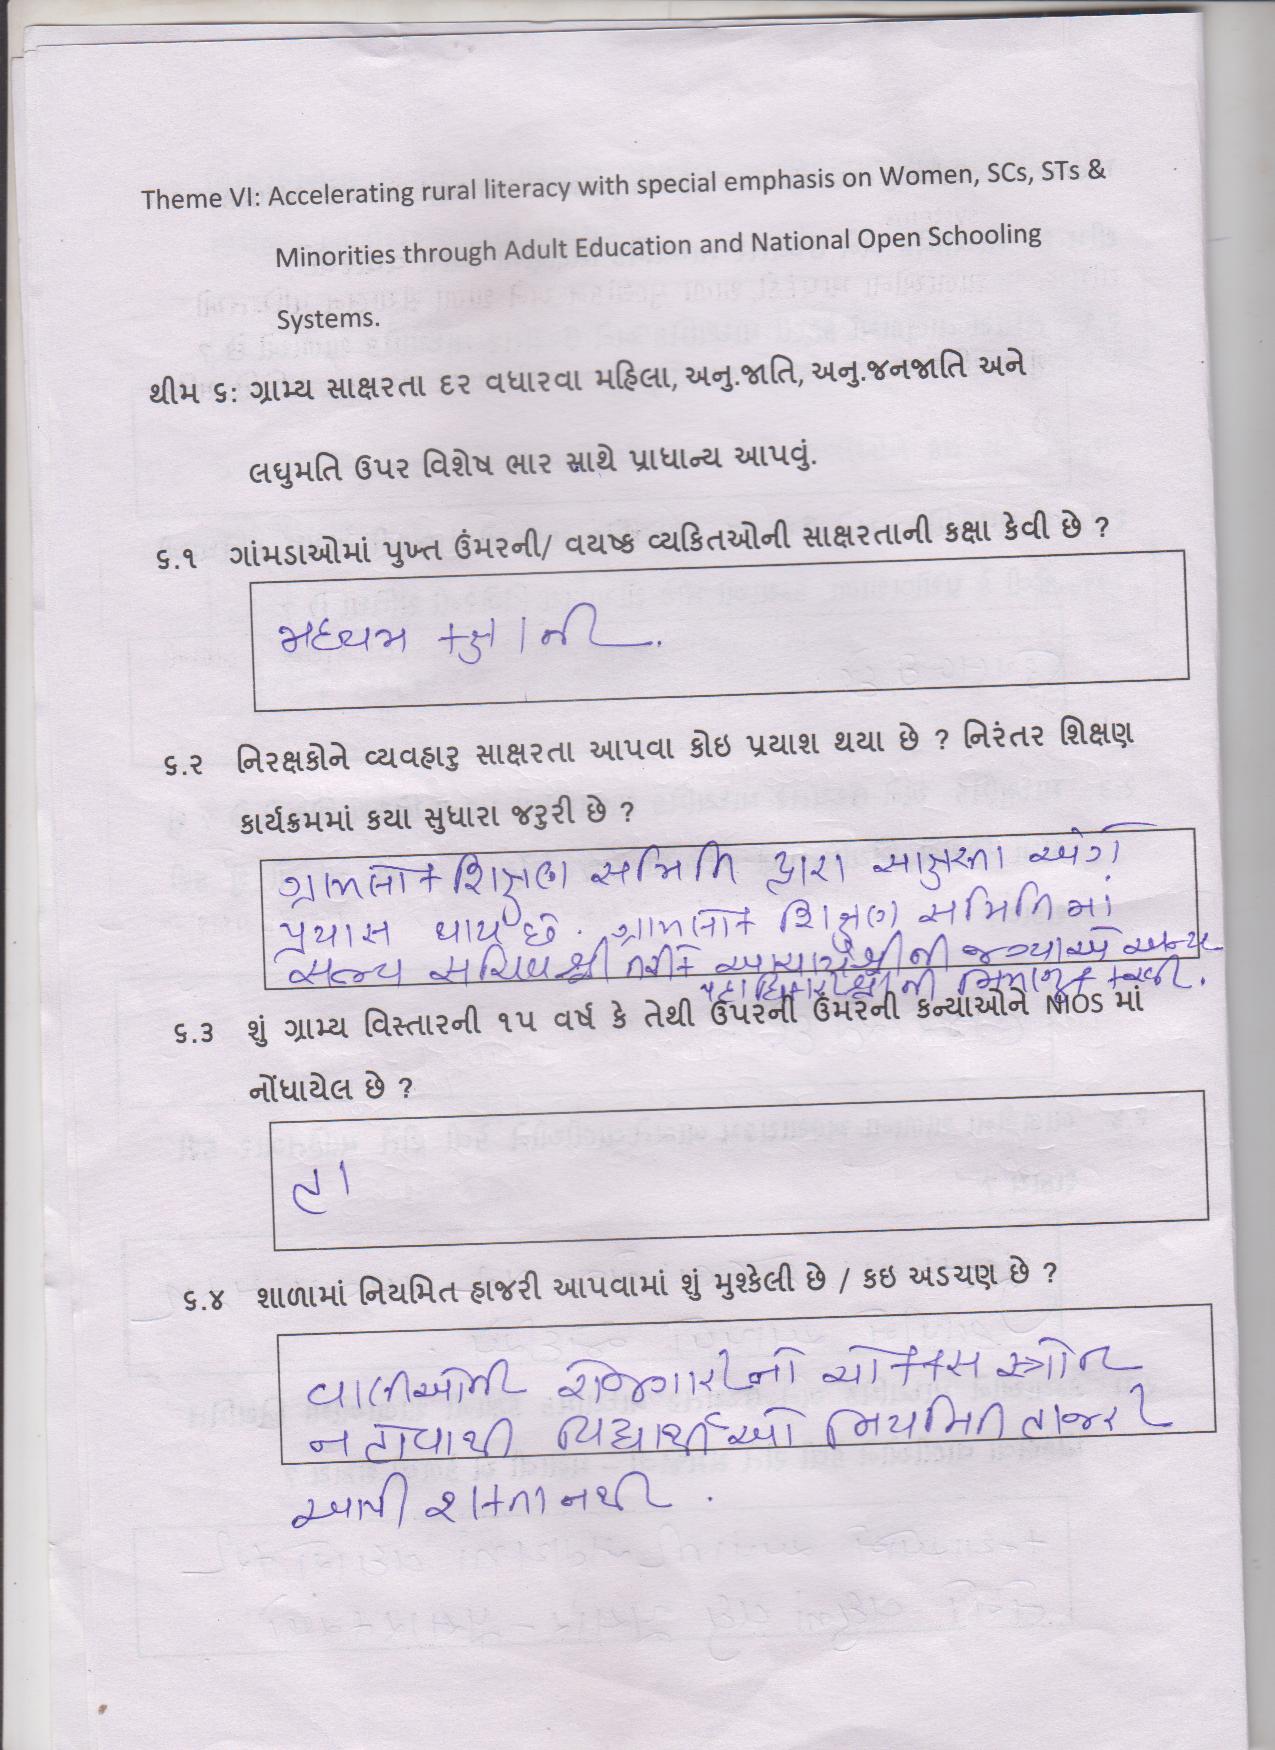 Theme VI: Accelerating rural literacy with special emphasis on Women, SCs, STs &
Minorities through Adult Education and National Open Schooling
Systems.
થીમ ૬: ગ્રામ્ય સાક્ષરતા દર વધારવા મહિલા, અનુ.જાતિ, અનુ.જનજાતિ અને
લઘુમતિ ઉપર વિશેષ ભાર સાથે પ્રાધાન્ય આપવું.
૬.૧ ગાંમડાઓમાં પુખ્ત ઉંમરની/ વયષ્ક વ્યકિતઓની સાક્ષરતાની કક્ષા કેવી છે ?
મધ્યમ કક્ષાની.
૬.૨ નિરક્ષકોને વ્યવહારુ સાક્ષરતા આપવા કોઇ પ્રયાશ થયા છે ? નિરંતર શિક્ષણ
કાર્યક્રમમાં કયા સુધારા જરુરી છે ?
ગ્રામલોક શિક્ષણ સમિતિ દ્વારા સાક્ષરતા અંગે
પ્રયાસ થાય છે. ગ્રામલોક શિક્ષણ સમિતિમાં
સભ્ય સચિવશ્રી તરીકે આચાર્યશ્રીની જગ્યાએ અન્ય
પદાધિકારીશ્રીની નિમણૂક કરવી.
૬.૩ શું ગ્રામ્ય વિસ્તારની ૧૫ વર્ષ કે તેથી ઉપરની ઉંમરની કન્યાઓને NIOS માં
નોંધાયેલ છે ?
હા
૬.૪ શાળામાં નિયમિત હાજરી આપવામાં શું મુશ્કેલી છે / કઇ અડચણ છે ?
વાલીઓની રોજગારીનો ચોક્કસ સ્ત્રોત
ન હોવાથી વિદ્યાર્થીઓ નિયમિત હાજરી
આપી શકતા નથી.